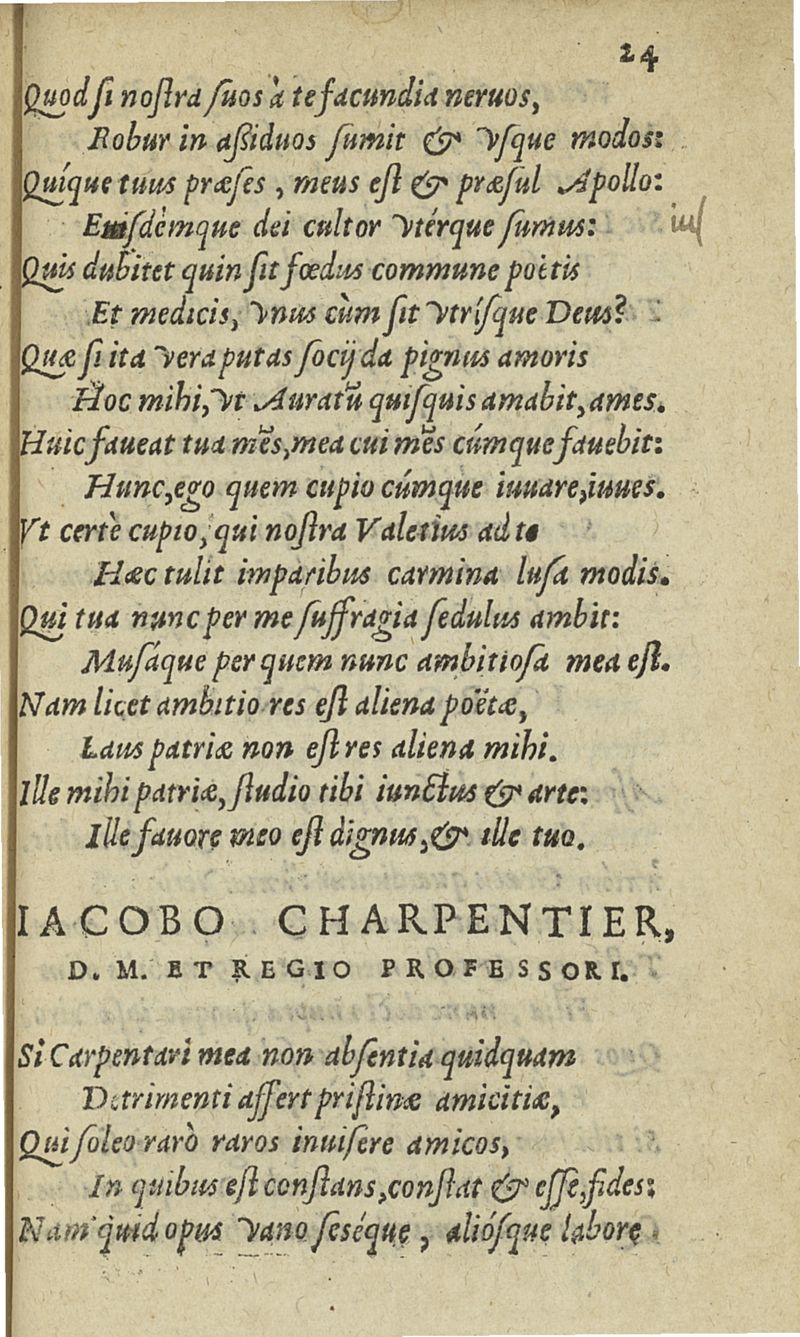 24
Quod si nostra suos à te facundia neruos,
Robur in assiduos sumit & vsque modos:
Quíque tuus præses, meus est & præsul Apollo:
Eiusdémque dei cultor vtérque sumus: ius
Quis dubitet quin sit fœdus commune poëtis
Et medicis, vnus cùm sit vtrísque Deus?
Quæ si ita vera putas socij da pignus amoris
Hoc mihi, vt Auratū quisquis amabit, ames.
Huic faueat tua mēs, mea cui mēs cúmque fauebit:
Hunc, ego quem cupio cúmque iuuare, iuues.
Vt certè cupio, qui nostra Valetius ad te
Hæc tulit imparibus carmina lusa modis.
Qui tua nunc per me suffragia sedulus ambit:
Musáque per quem nunc ambitiosa mea est.
Nam licet ambitio res est aliena poëtæ,
Laus patriæ non est res aliena mihi.
Ille mihi patriæ, studio tibi iunctus & arte:
Ille fauore meo est dignus, & ille tuo.
IACOBO CHARPENTIER,
D. M. ET REGIO PROFESSORI.
Si Carpentari mea non absentia quidquam
Detrimenti affert pristinæ amicitiæ,
Qui soleo rarò raros inuisere amicos,
In quibus est constans, constat & esse, fides:
Nam quid opus vano seséque, aliósque labore